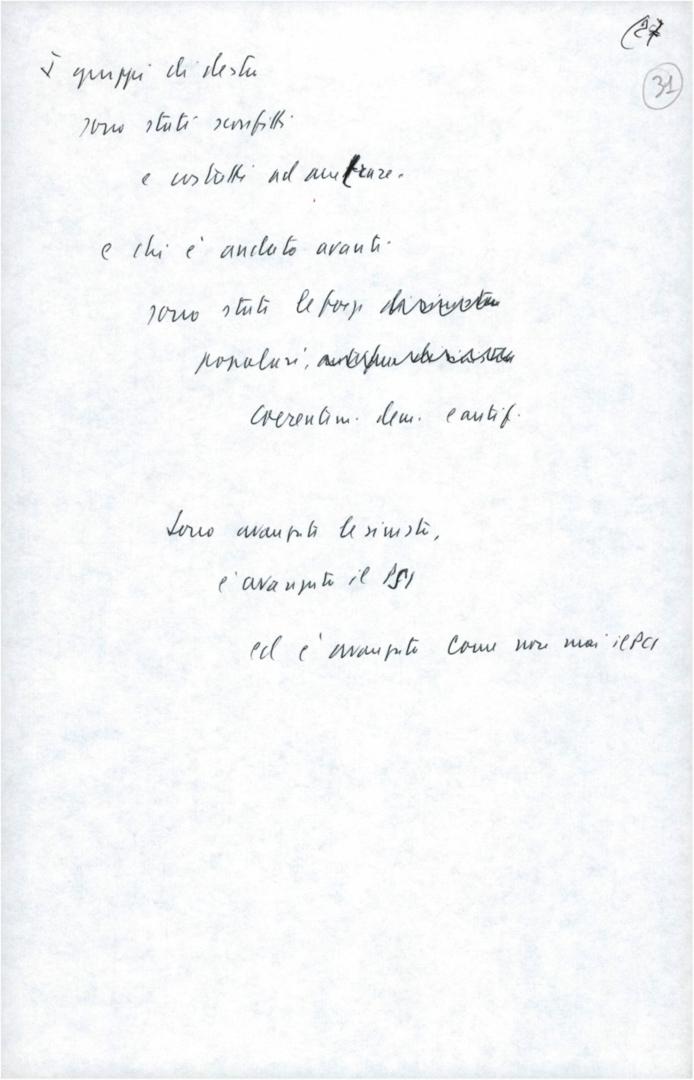 27
31
I gruppi di destra
sono stati sconfitti
e costretti ad arretrare.
e chi è andato avanti
sono state le forze di sinistra
popolari,
coerentem. dem. e antif.
Sono avanzate le sinistre,
è avanzato il PSI
ed è avanzato come non mai il PCI